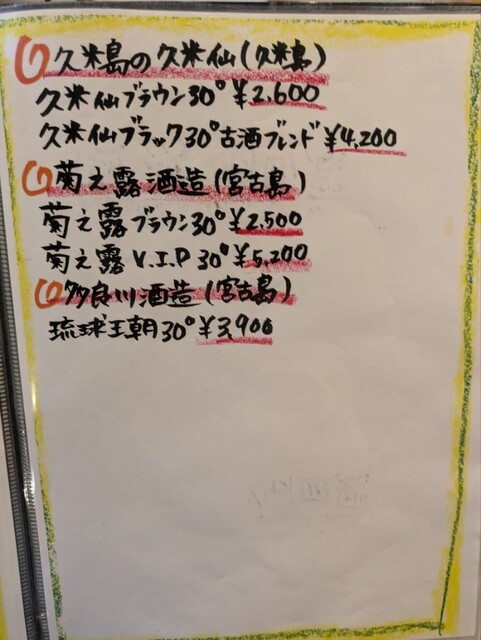 久米島の久米仙(久米島)
久米仙ブラウン30°¥2,600
久米仙ブラック30°古酒ブレンド¥4,200
菊之露酒造(宮古島)
菊之露ブラウン30°¥2,500
菊之露V.I.P 30°¥5,200
多良川酒造(宮古島)
琉球王朝30°¥3,900